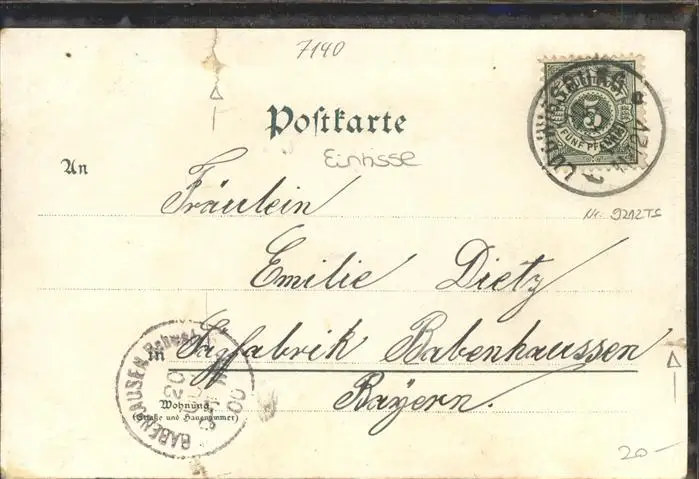 7140
Postkarte
LUDWIGSBURG
5
FÜNF PFENNIG
Einrisse
An
Fräulein
Nr. 9212TS
Emilie Dietz
in Sägfabrik Babenhaussen
BABENHAUSEN
20
00
Wohnung
(Straße und Hausnummer)
Bayern.
20-